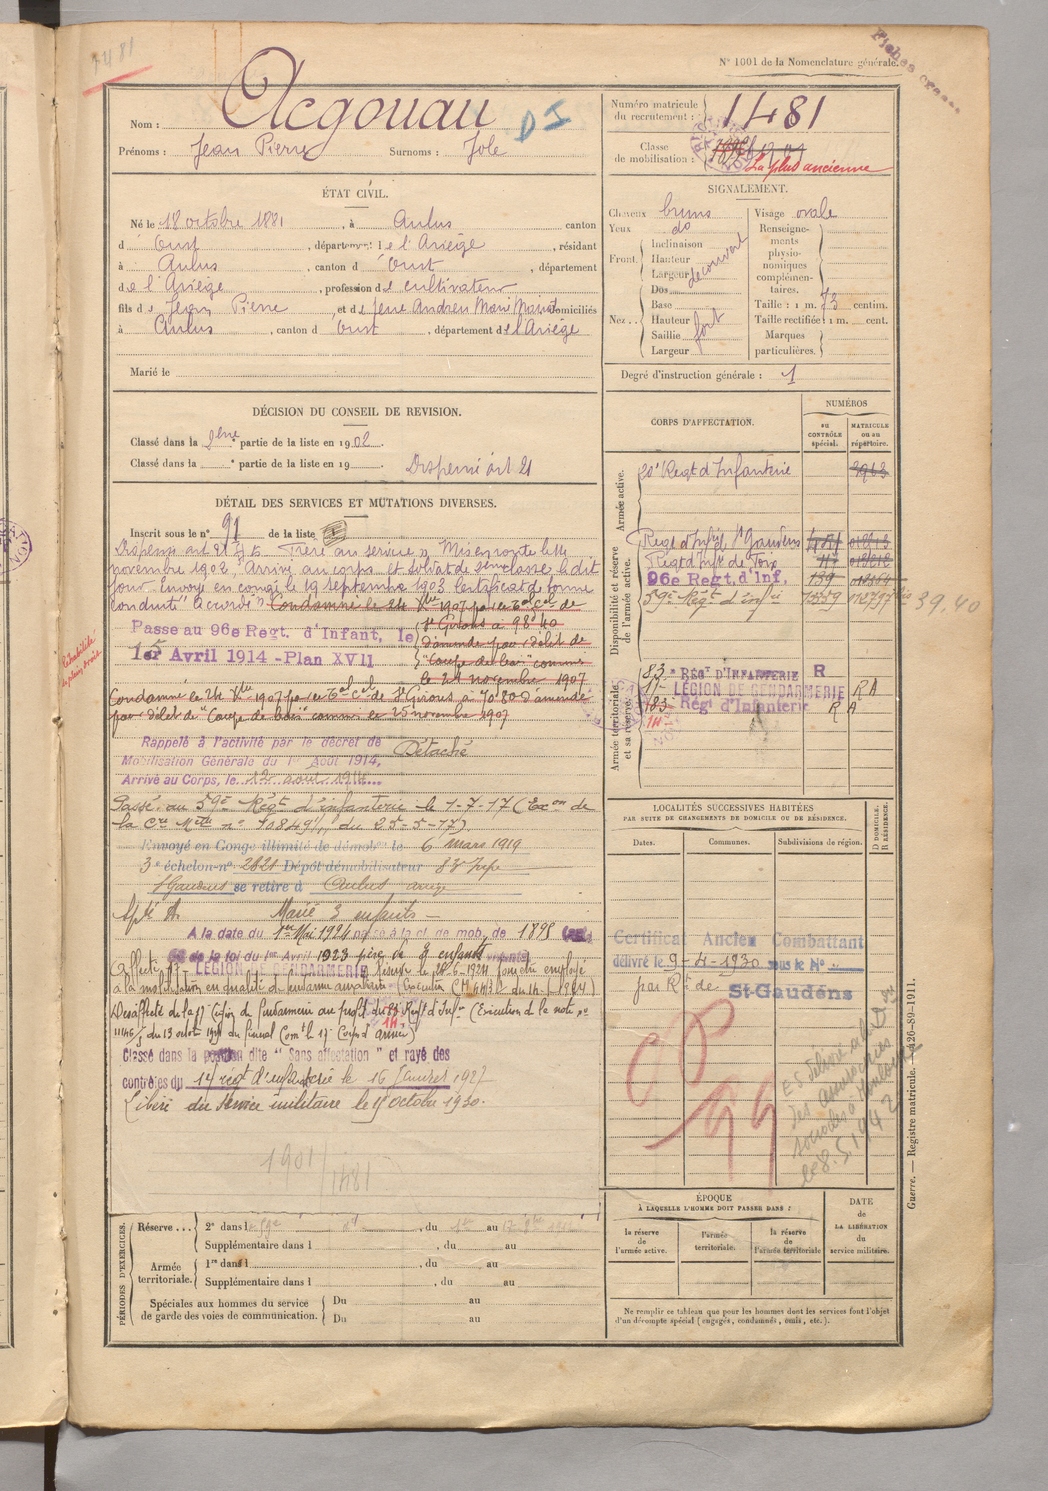 1481
N° 1001 de la Nomenclature générale.
Nom : Acgouau DI
Prénoms : Jean Pierre Surnoms : Jole
Numéro matricule du recrutement : 1481
Classe de mobilisation :
La plus ancienne
ÉTAT CIVIL.
Né le 18 octobre 1881, à Aulus canton
d Oust, département de l'Ariège, résidant
à Aulus, canton d Oust, département
de l'Ariège, profession de cultivateur
fils de Jean Pierre, et de domiciliés
à Aulus, canton d Oust, département de l'Ariège
Marié le
SIGNALEMENT.
Cheveux bruns
Yeux do
Front. Inclinaison
Hauteur
Largeur
découvert
Nez. Dos
Base
Hauteur
Saillie fort
Largeur
Visage ovale
Renseignements physionomiques complémentaires.
Taille : 1 m. 73 centim.
Taille rectifiée : 1 m. cent.
Marques particulières.
Degré d'instruction générale : 1
DÉCISION DU CONSEIL DE REVISION.
Classé dans la 2ème partie de la liste en 1902.
Classé dans la e partie de la liste en 19
Dispensé art 21
DÉTAIL DES SERVICES ET MUTATIONS DIVERSES.
Inscrit sous le n° 91 de la liste
Dispensé art 21 Frère au service". Mis en route le 14
novembre 1902, Arrivé au corps et soldat de 2ème classe le dit
jour. Envoyé en congé le 19 septembre 1903. Certificat de bonne
conduite "Accordé".
Condamné le 24 Xbre 1907 par le
St Girons à 98f40
d'amende pour délit de
"Coupe de bois" commis
le 24 novembre 1907
Passe au 96e Regt. d'Infant, le
1er Avril 1914 - Plan XVII
Réhabilité de plein droit
Condamné le 24 Xbre 1907 par le St Girons à 70.80 d'amende
pour délit de "Coupe de bois" commis le 25 novembre 1907
Rappelé à l'activité par le décret de
Mobilisation Générale du 1er Août 1914,
Arrivé au Corps, le 12 août 1914
Détaché
Passé au 59e Régt d'infanterie le 1-7-17 (Exon de
la Cre Melle n° 10849 du 25-5-17).
Envoyé en Congé illimité de démobon le 6 mars 1919
3e échelon n° 2821 Dépôt démobilisateur 83e
St Gaudens se retire à Aulus
Marié 3 enfants -
A la date du 1er Mai 1924 passé à la cl de mob. de 1898
de la loi du 1er Avril 1923 père de 3 enfants
Affecté 17e LÉGION DE GENDARMERIE
à la mobilisation en qualité de gendarme auxiliaire
Classé dans la position dite "Sans affectation" et rayé des
contrôles du 14e régt d'infanterie le 16 Janvier 1927
Libéré du service militaire le octobre 1930.
1901/1481
CORPS D'AFFECTATION.
NUMÉROS
au CONTRÔLE spécial.
MATRICULE ou au répertoire.
Armée active.
20e Régt d'Infanterie 3963
Disponibilité et réserve de l'armée active.
Régt d'Infie St Gaudens
Régt d'Infie de Foix
96e Regt. d'Inf. 139
59e Régt d'infie
39.40
Armée territoriale et sa réserve.
83e RÉGt D'INFANTERIE R
17e LÉGION DE GENDARMERIE RA
183e Régt d'Infanterie RA
14
LOCALITÉS SUCCESSIVES HABITÉES
PAR SUITE DE CHANGEMENTS DE DOMICILE OU DE RÉSIDENCE.
Dates.
Communes.
Subdivisions de région.
D DOMICILE.
R RÉSIDENCE.
Certificat Ancien Combattant
délivré le 9-4-1930 sous le N°
par Rt de St-Gaudens
CP 99
le 8.5.1942
PÉRIODES D'EXERCICES.
Réserve ... 2e dans l 59e, du au
Supplémentaire dans l , du au
Armée territoriale. 1re dans l , du au
Supplémentaire dans l , du au
Spéciales aux hommes du service de garde des voies de communication. Du au
Du au
ÉPOQUE
À LAQUELLE L'HOMME DOIT PASSER DANS :
la réserve de l'armée active.
l'armée territoriale.
la réserve de l'armée territoriale
DATE DE LA LIBÉRATION du service militaire.
Ne remplir ce tableau que pour les hommes dont les services font l'objet
d'un décompte spécial (engagés, condamnés, omis, etc.).
Guerre. — Registre matricule. — 426-89-1911.